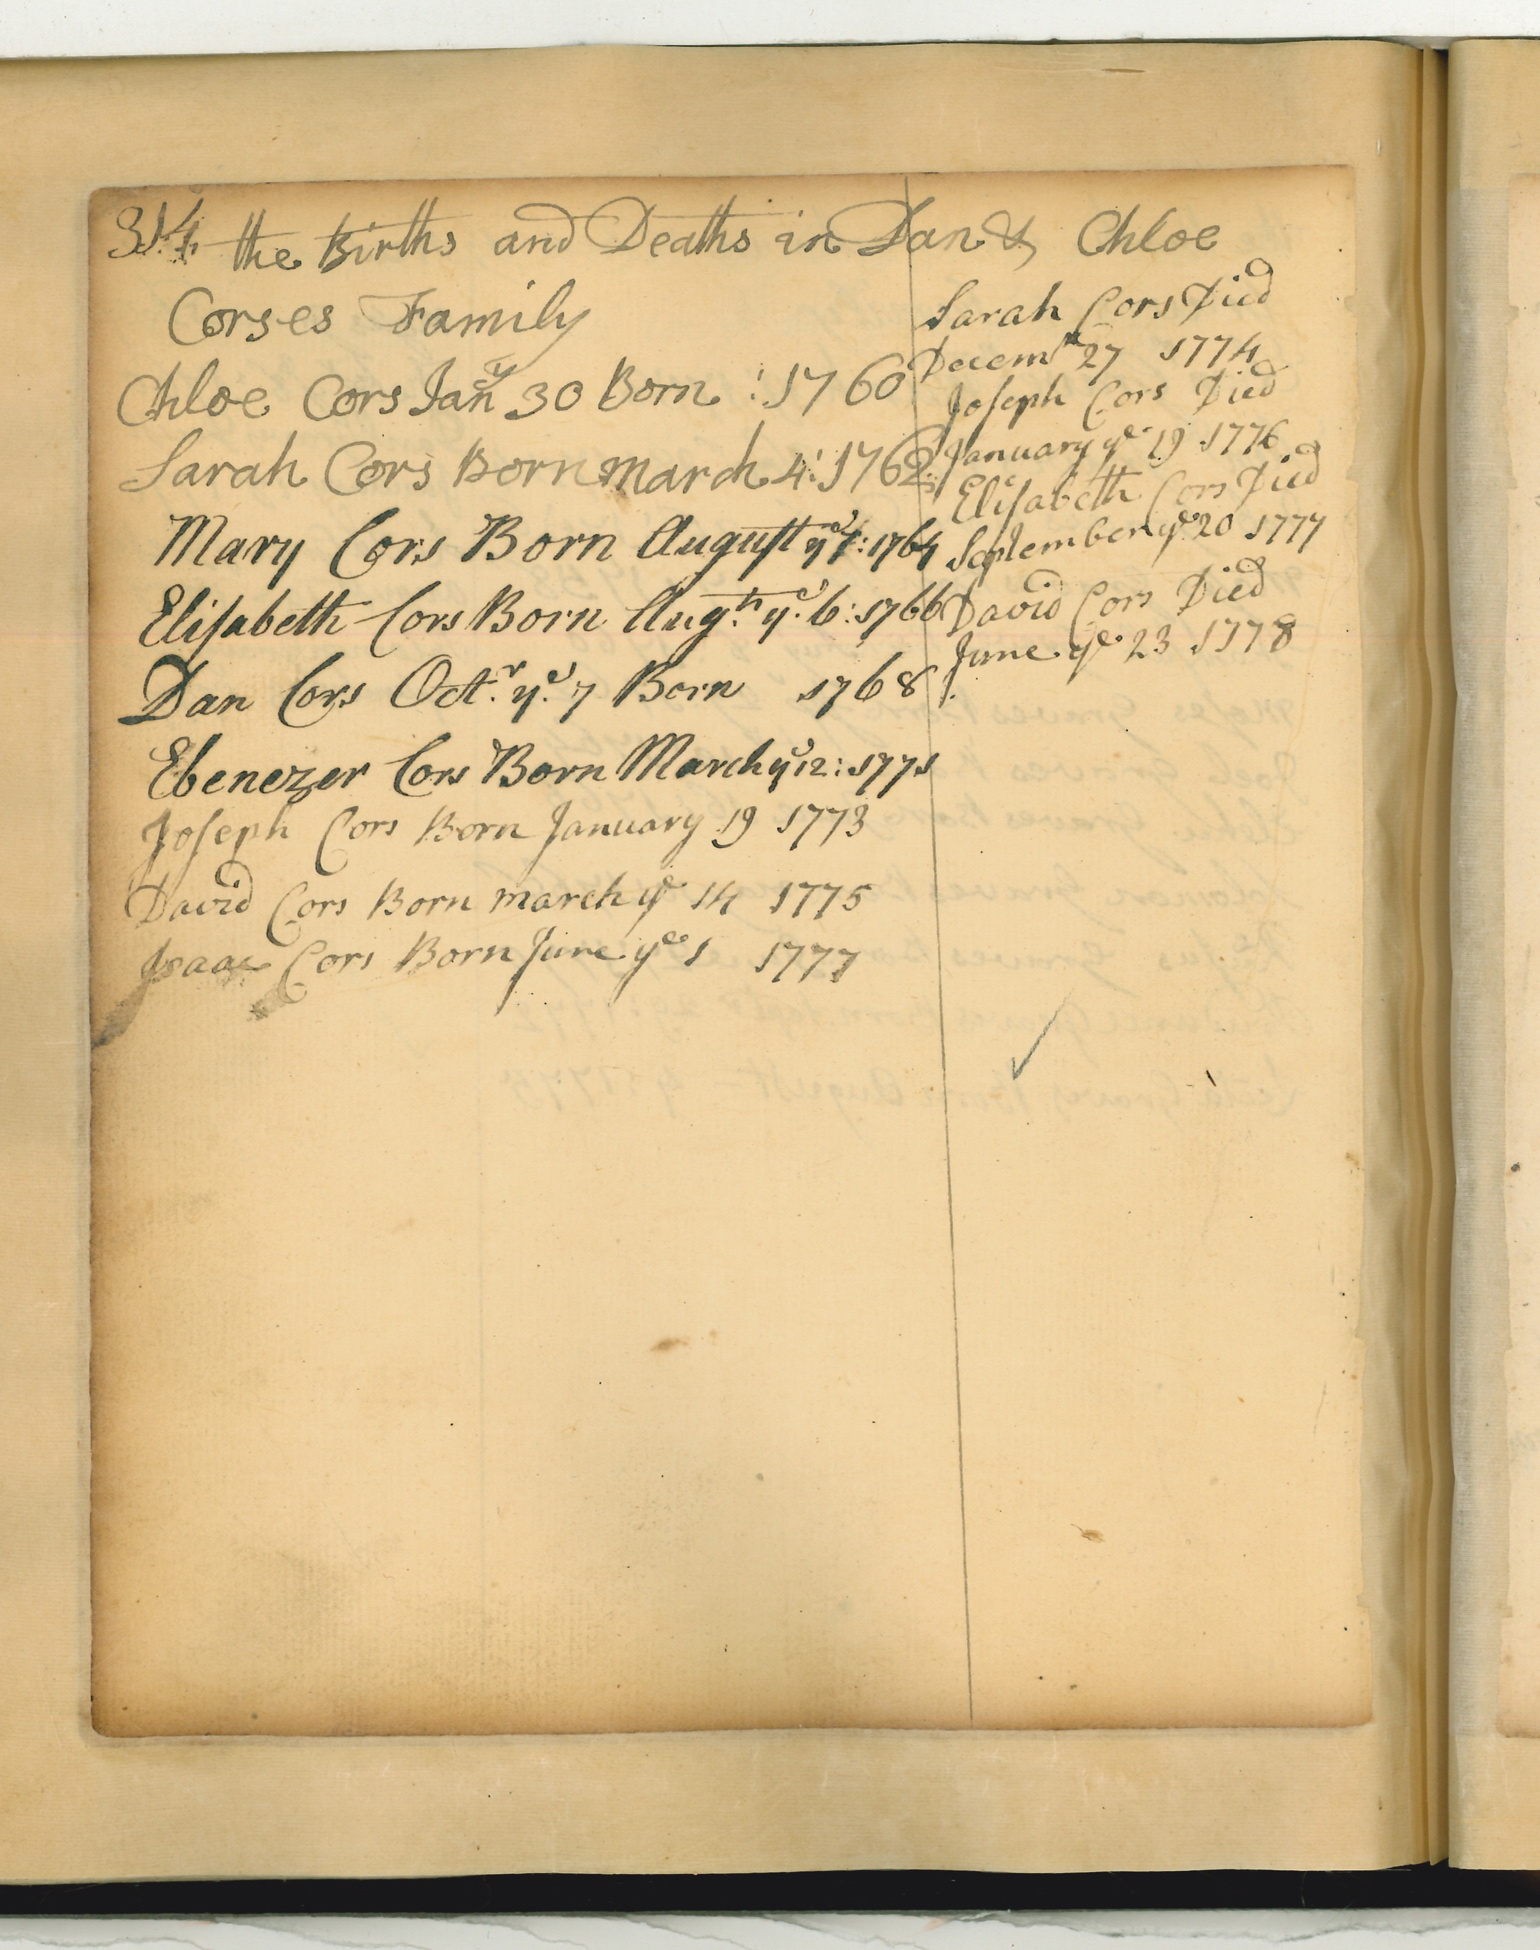 314 the Births and Deaths in Dan & Chloe
Corses Family
Chloe Cors Jany 30 Born : 1760
Sarah Cors Born march 4: 1762
Mary Cors Born August ye 7: 1764
Elisabeth Cors Born Augt. ye. 6: 1766
Dan Cors Octr. ye. 7 Born 1768
Ebenezer Cors Born March ye 12: 1771
Joseph Cors Born January 19 1773
David Cors Born march ye 14 1775
Isaac Cors Born June ye 1 1777
Sarah Cors Died
Decemr 27 1774
Joseph Cors Died
January ye 19 1776
Elisabeth Cors Died
September ye 20 1777
David Cors Died
June ye 23 1778